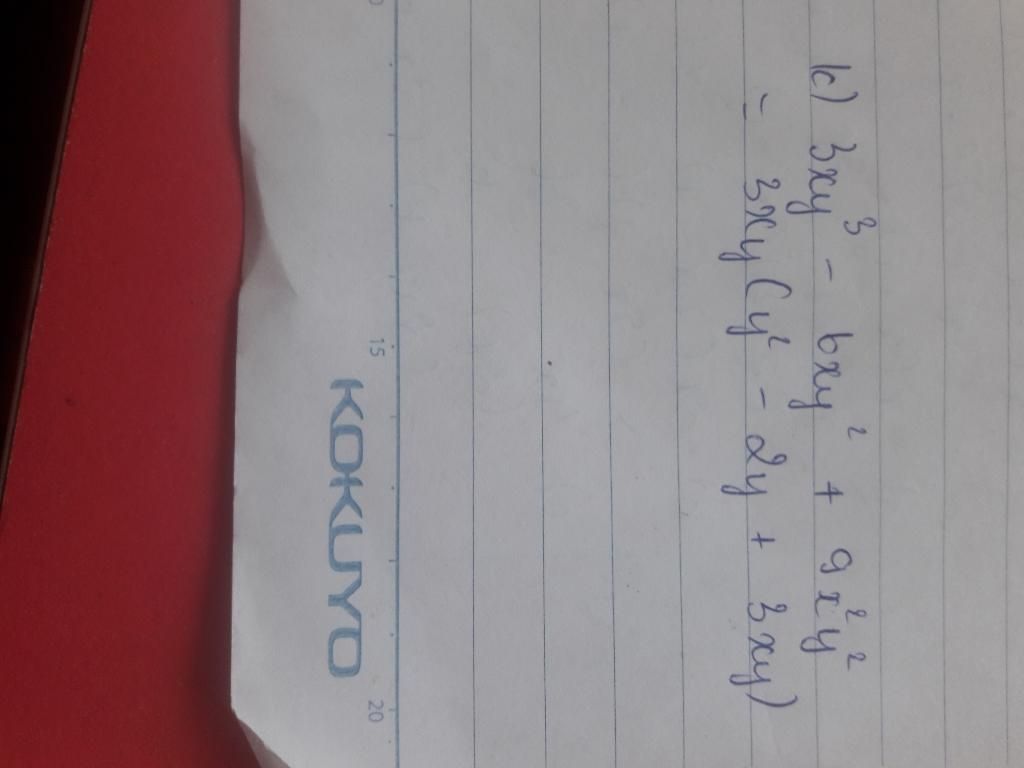 k) 3xy³ - 6xy² + 9x²y²
= 3xy(y² - 2y + 3xy)
15
20
KOKUYO